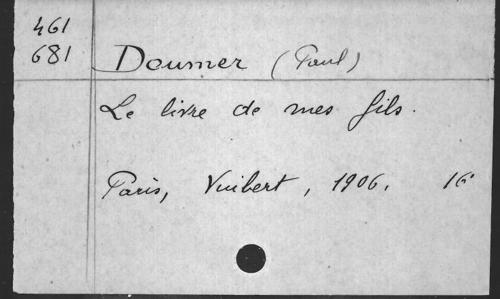 461
681
Doumer (Paul)
Le livre de mes fils.
Paris, Vuibert, 1906. 16°